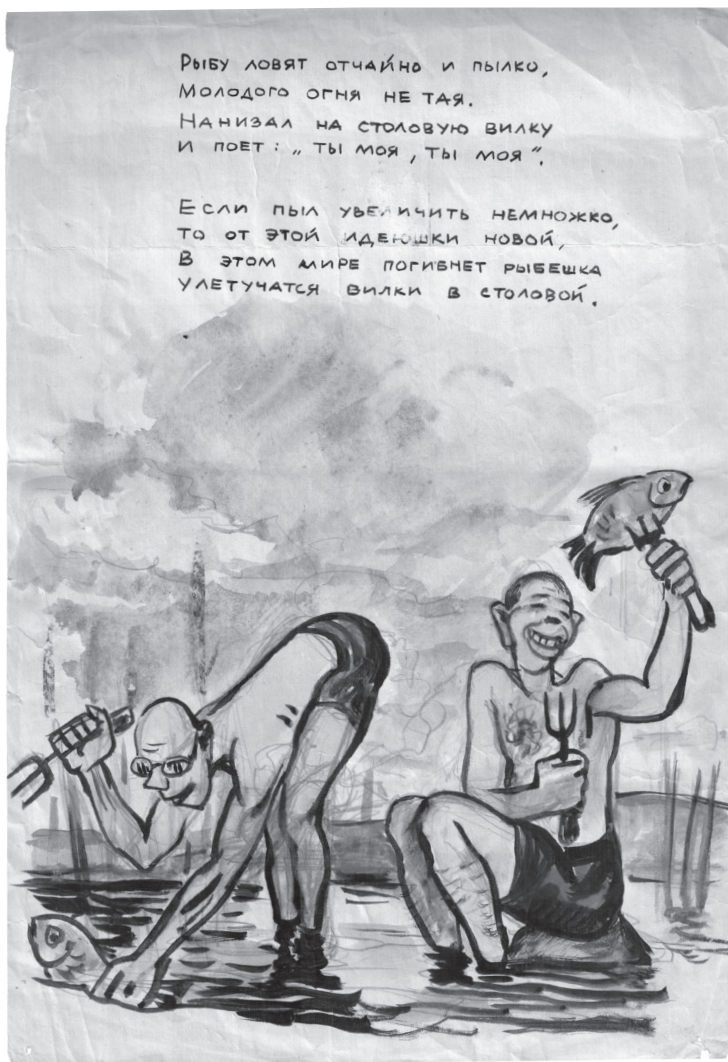 Рыбу ловят отчайно и пылко,
Молодого огня не тая.
Нанизал на столовую вилку
и поет: „ ты моя, ты моя ".
Если пыл увеличить немножко,
то от этой идеюшки новой,
В этом мире погибнет рыбешка
улетучатся вилки в столовой.